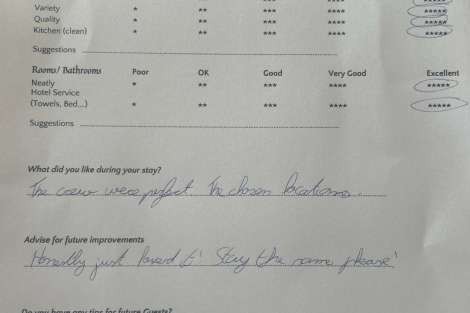 *** **** *****
Variety * ** *** **** *****
Quality * ** *** **** *****
Kitchen (clean) * ** *** **** *****
Suggestions
Rooms/ Bathrooms Poor OK Good Very Good Excellent
Neatly * ** *** **** *****
Hotel Service
(Towels, Bed...) * ** *** **** *****
Suggestions
What did you like during your stay?
The were perfect. The chosen locations.
Advise for future improvements
Honestly just loved it! Stay the same please!
Do you have any tips for future Guests?